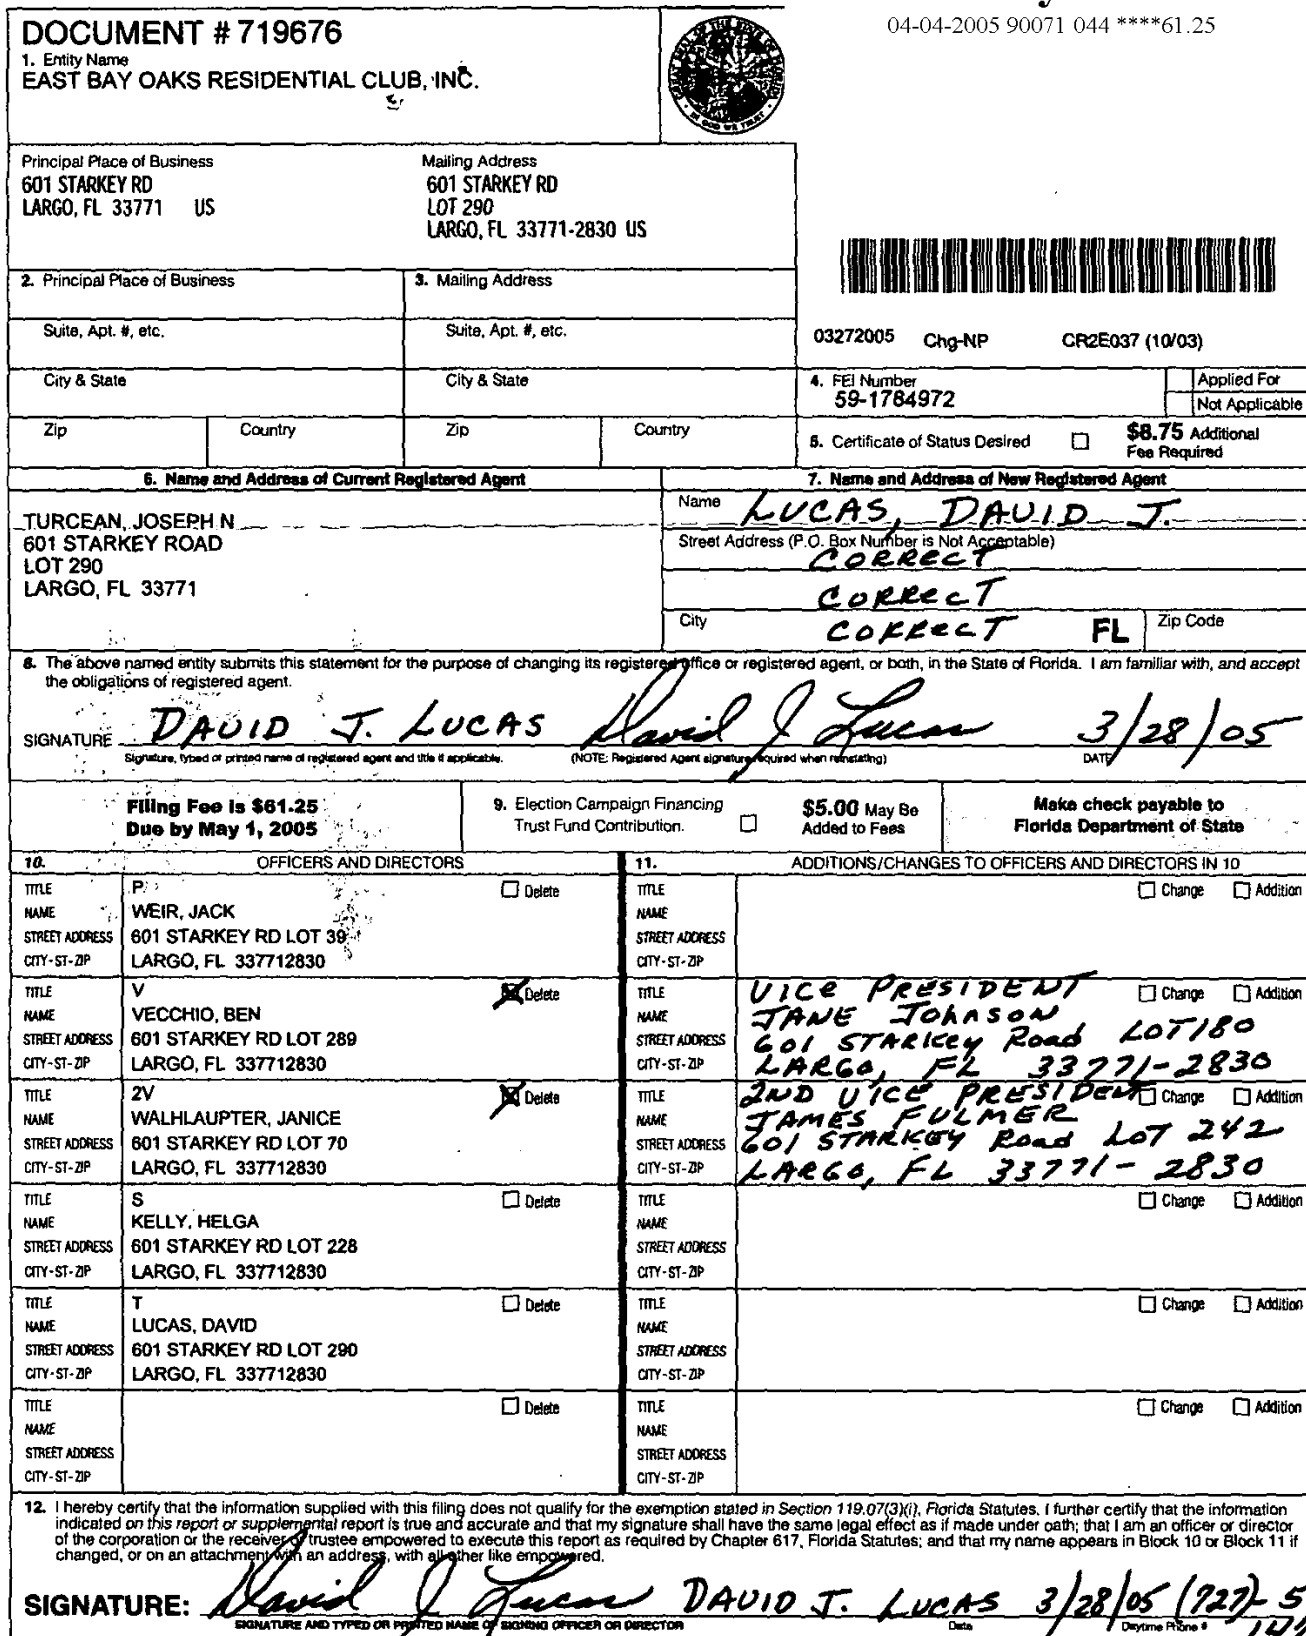 04-04-2005 90071 044 ****61.25
DOCUMENT # 719676
1. Entity Name
EAST BAY OAKS RESIDENTIAL CLUB, INC.
IN GOD WE TRUST
Principal Place of Business
601 STARKEY RD
LARGO, FL 33771 US
Mailing Address
601 STARKEY RD
LOT 290
LARGO, FL 33771-2830 US
2. Principal Place of Business
3. Mailing Address
Suite, Apt. #, etc.
Suite, Apt. #, etc.
03272005 Chg-NP CR2E037 (10/03)
City & State
City & State
4. FEI Number
59-1784972
Applied For
Not Applicable
Zip Country Zip Country
5. Certificate of Status Desired
$8.75 Additional
Fee Required
6. Name and Address of Current Registered Agent
TURCEAN, JOSEPH N
601 STARKEY ROAD
LOT 290
LARGO, FL 33771
7. Name and Address of New Registered Agent
Name LUCAS, DAVID J.
Street Address (P.O. Box Number is Not Acceptable)
CORRECT
CORRECT
City CORRECT FL Zip Code
8. The above named entity submits this statement for the purpose of changing its registered office or registered agent, or both, in the State of Florida. I am familiar with, and accept
the obligations of registered agent.
SIGNATURE DAVID J. LUCAS David J Lucas 3/28/05
Signature, typed or printed name of registered agent and title if applicable. (NOTE: Registered Agent signature required when reinstating) DATE
Filing Fee is $61.25
Due by May 1, 2005
9. Election Campaign Financing
Trust Fund Contribution.
$5.00 May Be
Added to Fees
Make check payable to
Florida Department of State
10. OFFICERS AND DIRECTORS
11. ADDITIONS/CHANGES TO OFFICERS AND DIRECTORS IN 10
TITLE P Delete
NAME WEIR, JACK
STREET ADDRESS 601 STARKEY RD LOT 39
CITY-ST-ZIP LARGO, FL 337712830
TITLE Change Addition
NAME
STREET ADDRESS
CITY-ST-ZIP
TITLE V Delete
NAME VECCHIO, BEN
STREET ADDRESS 601 STARKEY RD LOT 289
CITY-ST-ZIP LARGO, FL 337712830
TITLE VICE PRESIDENT Change Addition
NAME JANE JOHNSON
STREET ADDRESS 601 STARKEY Road LOT 180
CITY-ST-ZIP LARGO, FL 33771-2830
TITLE 2V Delete
NAME WALHLAUPTER, JANICE
STREET ADDRESS 601 STARKEY RD LOT 70
CITY-ST-ZIP LARGO, FL 337712830
TITLE 2ND VICE PRESIDENT Change Addition
NAME JAMES FULMER
STREET ADDRESS 601 STARKEY Road LOT 242
CITY-ST-ZIP LARGO, FL 33771-2830
TITLE S Delete
NAME KELLY, HELGA
STREET ADDRESS 601 STARKEY RD LOT 228
CITY-ST-ZIP LARGO, FL 337712830
TITLE Change Addition
NAME
STREET ADDRESS
CITY-ST-ZIP
TITLE T Delete
NAME LUCAS, DAVID
STREET ADDRESS 601 STARKEY RD LOT 290
CITY-ST-ZIP LARGO, FL 337712830
TITLE Change Addition
NAME
STREET ADDRESS
CITY-ST-ZIP
TITLE Delete
NAME
STREET ADDRESS
CITY-ST-ZIP
TITLE Change Addition
NAME
STREET ADDRESS
CITY-ST-ZIP
12. I hereby certify that the information supplied with this filing does not qualify for the exemption stated in Section 119.07(3)(i), Florida Statutes. I further certify that the information
indicated on this report or supplemental report is true and accurate and that my signature shall have the same legal effect as if made under oath; that I am an officer or director
of the corporation or the receiver or trustee empowered to execute this report as required by Chapter 617, Florida Statutes; and that my name appears in Block 10 or Block 11 if
changed, or on an attachment with an address, with all other like empowered.
SIGNATURE: David J Lucas DAVID J. LUCAS 3/28/05 (727)-5
SIGNATURE AND TYPED OR PRINTED NAME OF SIGNING OFFICER OR DIRECTOR Date Daytime Phone #